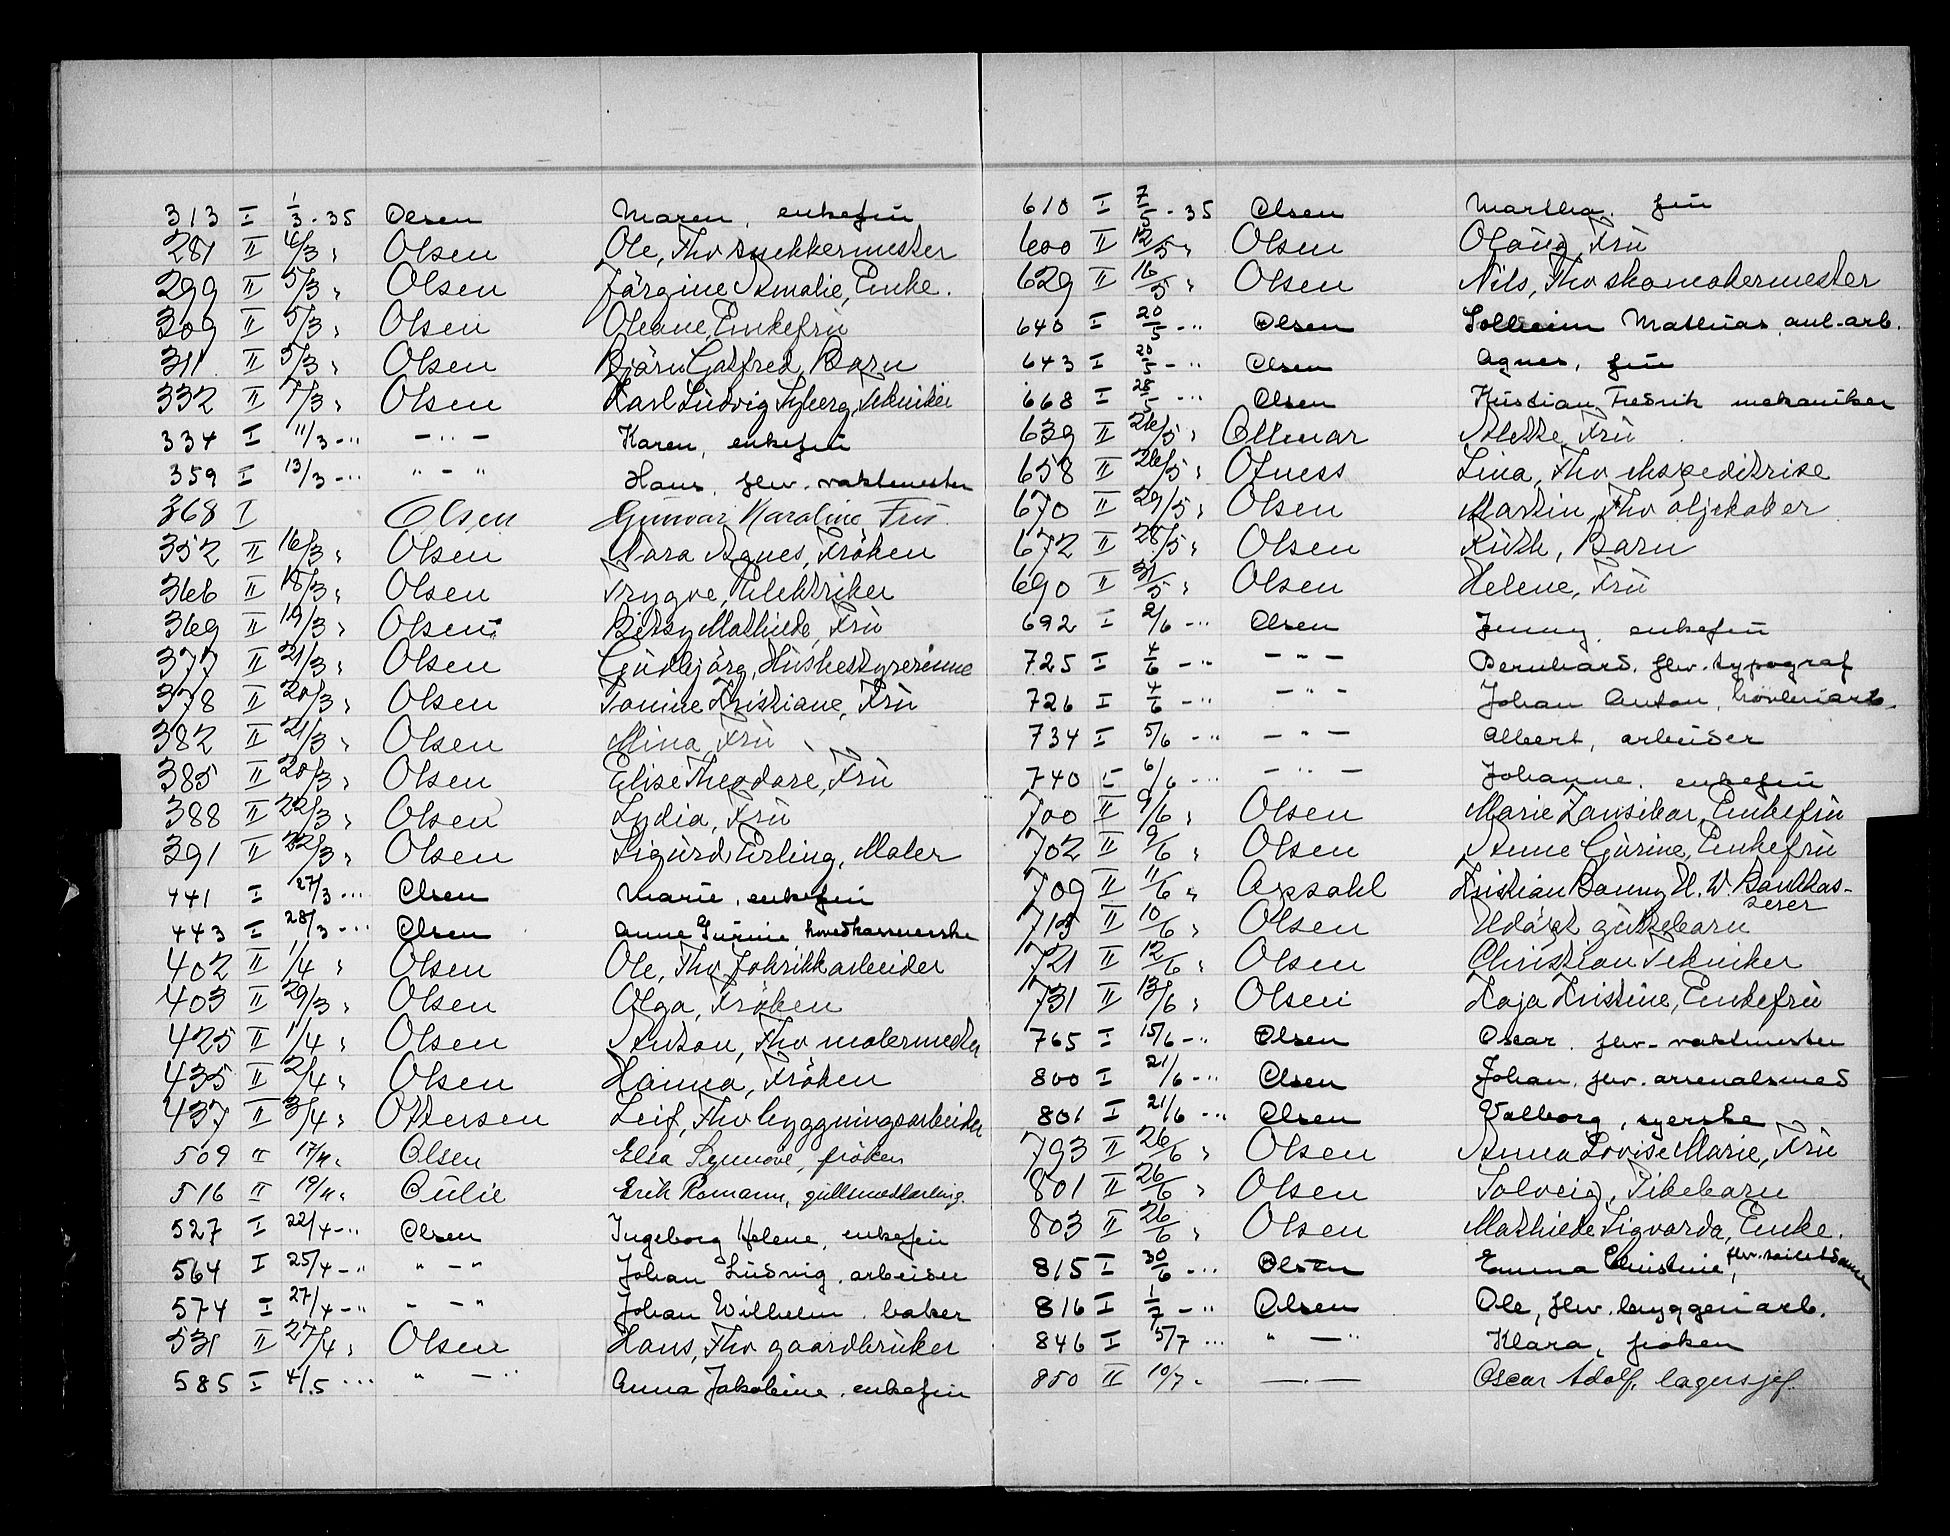 313 I 1/3 - 35 Olsen Maren, enkefru
281 II 4/3 " Olsen Ole, Fhv snekkermester
299 II 5/3 " Olsen Jörgine Amalie, Enke.
309 II 5/3 " Olsen Oleane, Enkefru
311 II 5/3 " Olsen Björn Gotfred, Barn
332 II 7/3 " Olsen Karl Ludvig Syberg, Tekniker
334 I 11/3 - " - " - Karen, enkefru
359 I 13/3 - " " - " Hans, fhv. vaktmester
368 I Olsen Gunvor Karoline Fru
352 II 16/3 " Olsen Nora Agnes, Fröken
366 II 18/3 " Olsen Trygve, Elektriker
369 II 19/3 " Olsen Betsy Mathilde, Fru
377 II 21/3 " Olsen Gudbjörg, Husbestyrerinne
378 II 20/3 " Olsen Tomine Kristiane, Fru
382 II 21/3 " Olsen Mina, Fru
385 II 20/3 " Olsen Elise Theodore, Fru
388 II 22/3 " Olsen Lydia, Fru
391 II 22/3 " Olsen Sigurd Erling, Maler
441 I 27/3 - " Olsen Marie, enkefru
443 I 28/3 - " Olsen Anne Gurine, hovedkassererske
402 II 1/4 " Olsen Ole, Fhv fabrikkarbeider
403 II 29/3 " Olsen Olga, Fröken
425 II 1/4 " Olsen Anton, Fhv malermester
435 II 2/4 " Olsen Hanna, Fröken
437 II 3/4 " Ottersen Leif, Fhv byggningsarbeider
509 II 17/4 " Olsen Elsa Synnove, fröken
516 II 19/4 " Oulie Erik Romann, gullsmedlærling.
527 I 22/4 - " Olsen Ingeborg Helene, enkefru
564 I 25/4 - " " - " Johan Ludvig, arbeider
574 I 27/4 - " - - " Johan Wilhelm, baker
531 II 27/4 " Olsen Hans, Fhv gaardbruker
585 I 4/5 - " " - " Anna Jakobine, enkefru
610 I 7/5 - 35 Olsen Martha, fru
600 II 12/5 " Olsen Olaug, Fru
629 II 16/5 " Olsen Nils, Fhv skomakermester
640 I 20/5 - " Olsen Solheim Mathias anl-arb.
643 I 20/5 - " Olsen Agnes, fru
668 I 28/5 - " Olsen Kristian Fredrik mekaniker
639 II 26/5 " Ottmar Alette, Fru
658 II 26/5 " Ofness Lina, Fhv ekspeditrise
670 II 29/5 " Olsen Martin, Fhv oljekoker
672 II 28/5 " Olsen Ruth, Barn
690 II 31/5 " Olsen Helene, Fru
692 I 2/6 - " Olsen Jenny, enkefru
725 I 4/6 - " - " - Bernhard, fhv. typograf
726 I 4/6 - " - " - Johan Anton, hövleriarb.
734 I 5/6 - " - " - Albert, arbeider
740 I 6/6 - " - " - Johanne, enkefru
700 II 9/6 " Olsen Marie Zansibar, Enkefru
702 II 9/6 " Olsen Anne Gurine, Enkefru
709 II 11/6 " Opsahl Kristian Bonny H. W. Bankkas-
serer
713 II 10/6 " Olsen Udöpt guttebarn
721 II 12/6 " Olsen Christian Tekniker
731 II 13/6 " Olsen Kaja Kristine, Enkefru
765 I 15/6 - " Olsen Oscar, fhv. vaktmester
800 I 21/6 - " Olsen Johan, fhv. arsenalsmed
801 I 21/6 - " Olsen Valborg, syerske
793 II 26/6 " Olsen Anna Lovise Marie, Fru
801 II 26/6 " Olsen Solveig, Pikebarn
803 II 26/6 " Olsen Mathilde Sigvarda, Enke.
815 I 30/6 - " Olsen Emma Christine, fhv. toilettdame
816 I 1/7 - " Olsen Ole, fhv. bryggeriarb.
846 I 5/7 - " " - " Klara, fröken
850 II 10/7 " - " - Oscar Adolf, lagersjef.